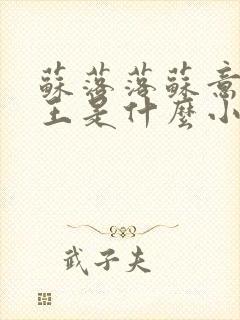 蘇落落蘇意
主是什麼小
武子夫